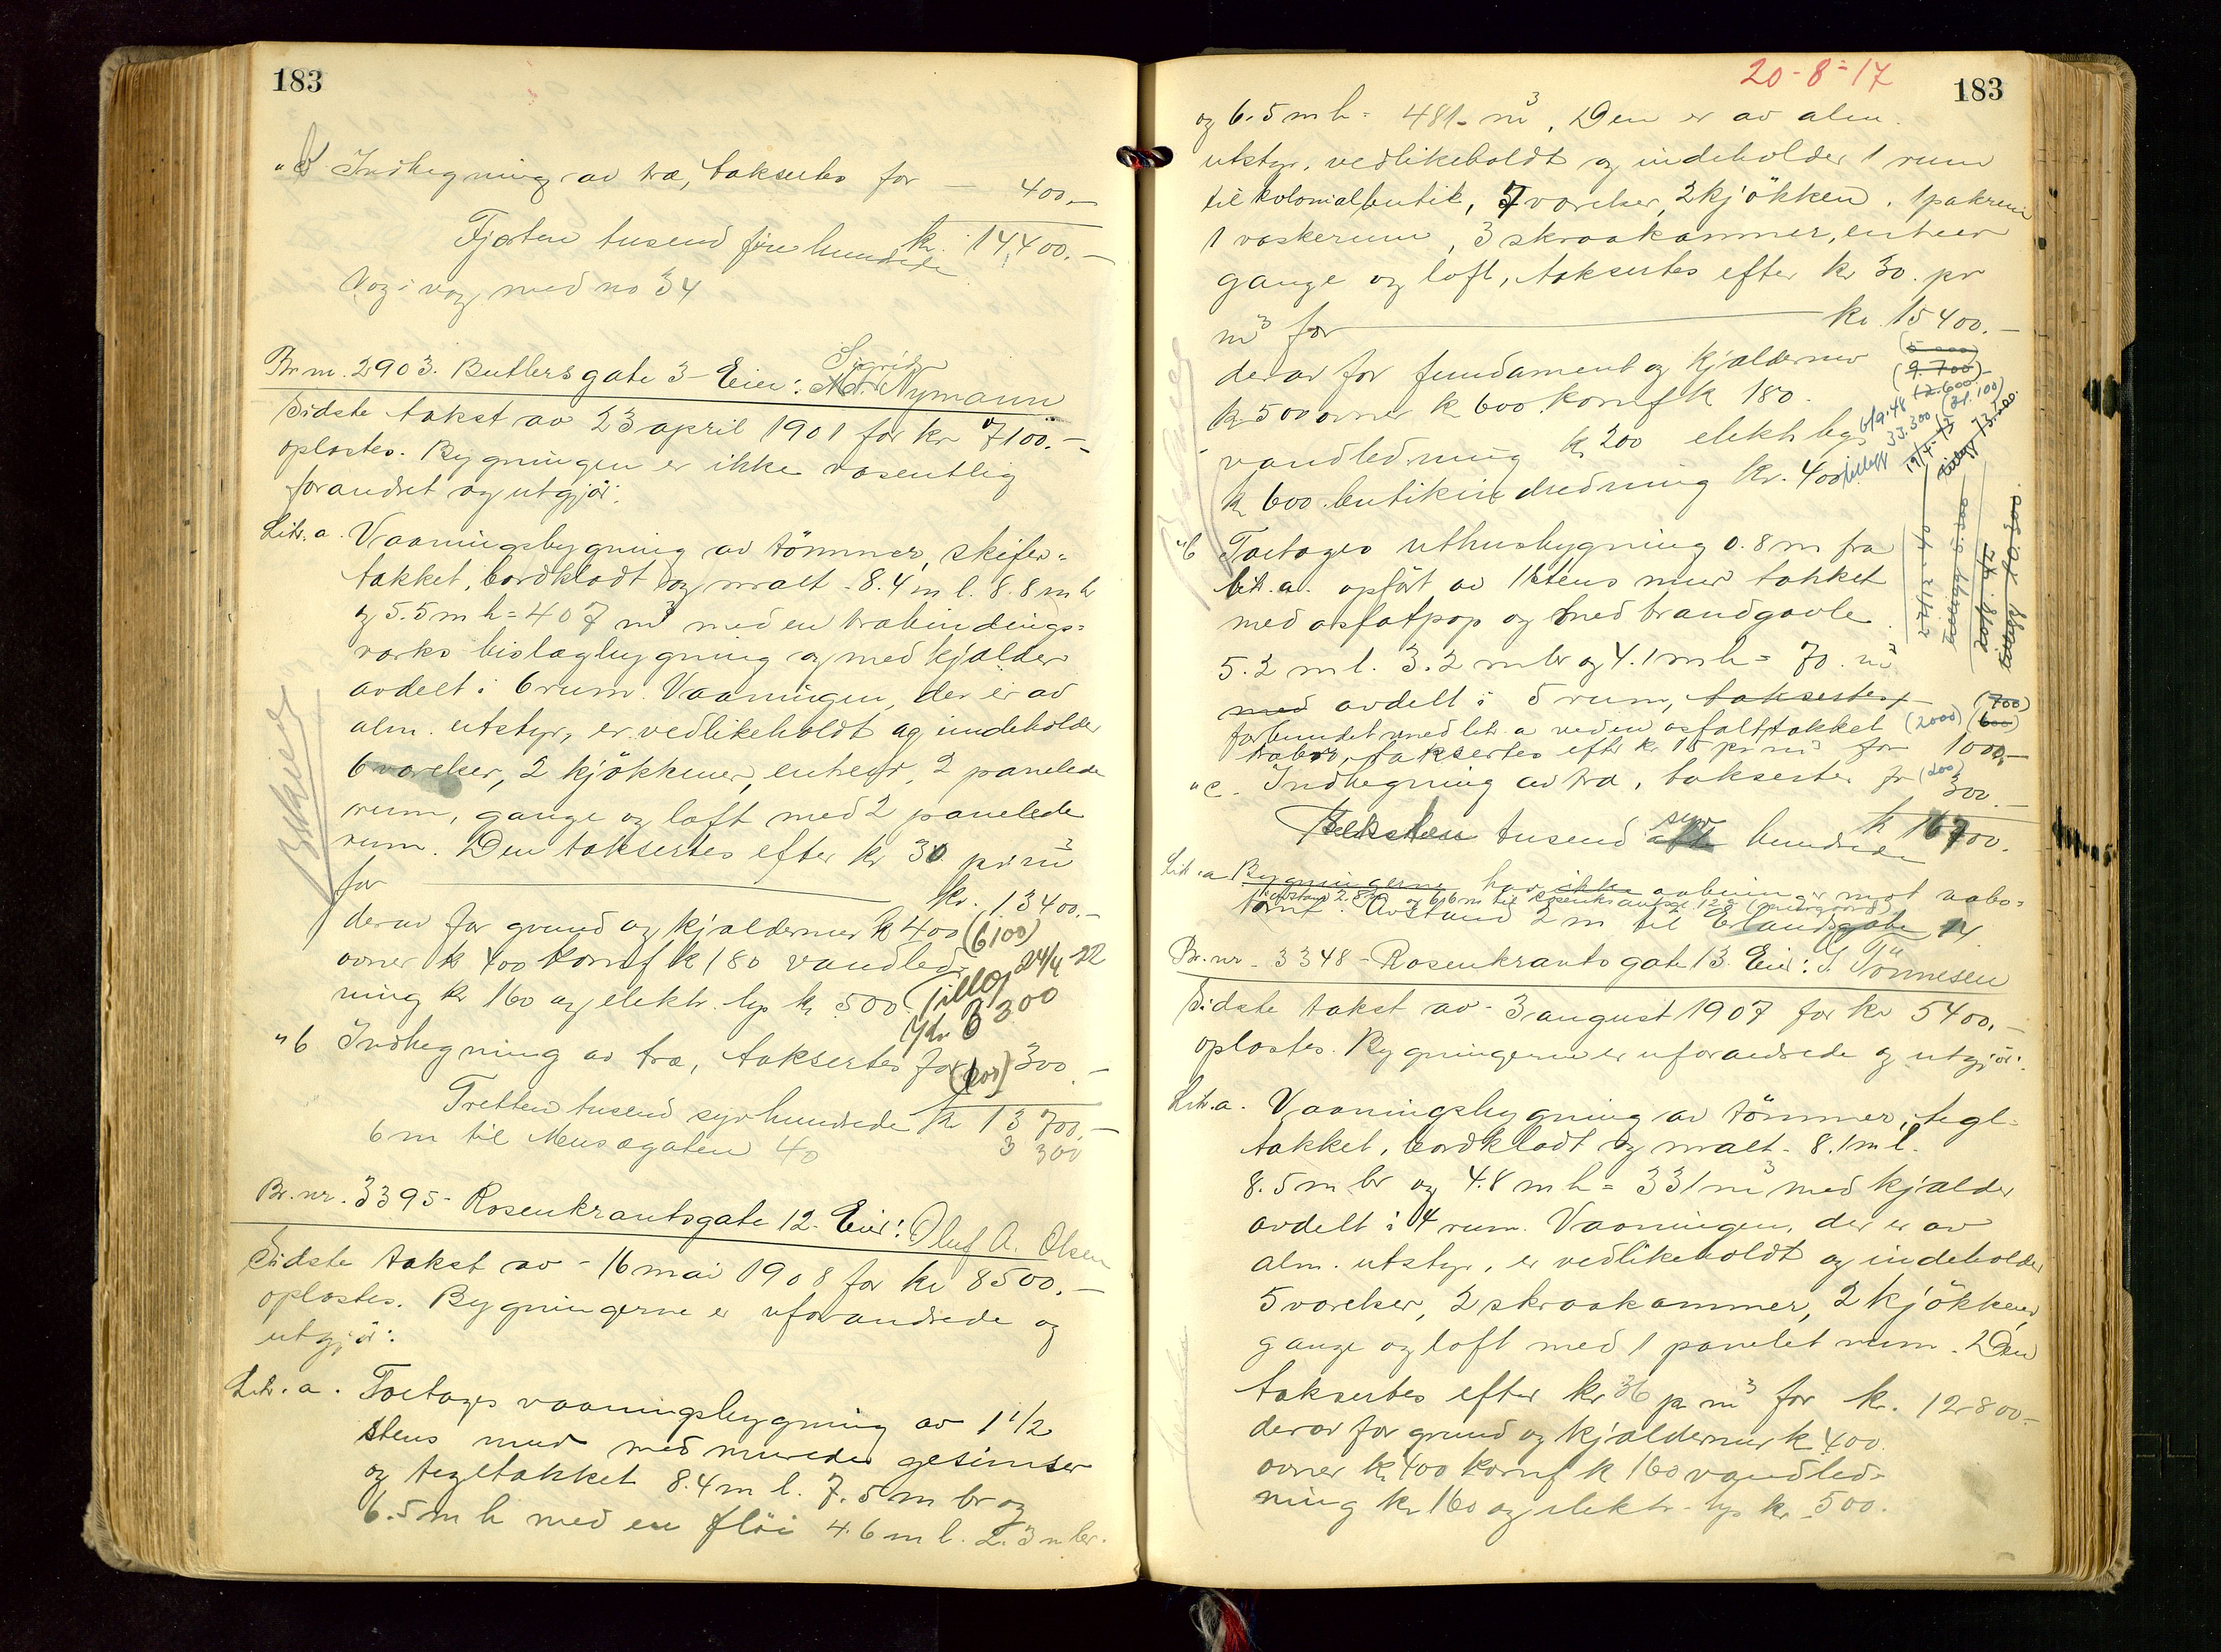 183
"d Indhegning av træ, takseres for — 400.—
Fjorten tusend fire hundrede kr. 14400.—
Væg i væg med no 34
Br.nr. 2903. Butlers gate 3 - Eier: Sigrid Nymann
Sidste takst av 23 april 1901 for kr 7100.—
oplæstes. Bygningen er ikke væsentlig
forandret og utgjør:
Litr. a. Vaaningsbygning av tömmer, skifer-
tækket, bordklædt og malt - 8.4 m l. 8.8 m b
og 5.5 m h = 407 m³ med en træbindings-
verks bislagbygning og med kjælder
avdelt i 6 rum. Vaaningen, der er av
alm. utstyr, er vedlikeholdt og indeholder
6 værelser, 2 kjökkener, entreer, 2 panelede
rum, gange og loft med 2 panelede
rum. Den taksertes efter kr 30 pr m³
for — kr. 13400.—
derav for grund og kjældermur kr 400 (6100)
ovner kr 400 komf kr 180 vandled-
ning kr 160 og elektr. lys kr 500. Tillæg 24/4 22
"b Indhegning av træ, taksertes for 300.—
Tretten tusend syv hundrede kr 13700.—
6 m til Musægaten 40 3 300
Br.nr. 3395 - Rosenkrantsgate 12. Eier: Oluf A. Olsen
Sidste takst av - 16 mai 1908 for kr 8500.—
oplæstes. Bygningerne er uforandrede og
utgjør:
Litr. a. Toetages vaaningsbygning av 1 1/2
stens mur med murede gesimser
og tegltækket 8.4 m l. 7.5 m br og
6.5 m h med en flöi 4.6 m l. 2.3 m br.
20-8-17
183
og 6.5 m h = 481 - m³. Den er av alm.
utstyr, vedlikeholdt og indeholder 1 rum
til kolonialbutik, 7 værelser, 2 kjökken, 1 pakrum
1 vaskerum, 3 skraakammer, entreer
gange og loft, taksertes efter kr 30. pr
m³ for — kr. 15400.—
derav for fundament og kjældermur
kr 500 ovner kr 600. komf kr 180.
vandledning kr 200 elektr lys
kr 600. butikindredning kr. 400
"b Toetages uthusbygning 0.8 m fra
litr. a. opført av 1 stens mur tækket
med asfaltpap og med brandgavle.
5.2 m l. 3.2 m br og 4.1 m h = 70. m³
med avdelt i 5 rum, taksertes (700)
forbundet med litr. a ved en asfalttækket (2000) (600)
taksertes efter kr 15 pr m³ for 1000.—
"c. Indhegning av træ, taksertes for (200) 300.—
Seksten tusend syv hundrede kr 16700.
Litr. a Bygningerne har ikke aabninger mot nabo-
tomt. Avstand 2 m til Erlandsgate 14
Br.nr. 3348 - Rosenkrantsgate 13. Eier: J. Tönnesen
Sidste takst av - 3 august 1907 for kr 5400.—
oplæstes. Bygningerne er uforandrede og utgjør:
Litr. a. Vaaningsbygning av tömmer, tegl-
tækket, bordklædt og malt - 8.1 m l.
8.5 m br og 4.8 m h = 331 m³ med kjælder
avdelt i 4 rum. Vaaningen, der er av
alm. utstyr, er vedlikeholdt og indeholder
5 værelser, 2 skraakammer, 2 kjökkener
gange og loft med 1 panelet rum. Den
taksertes efter kr 36 pr m³ for kr. 12800.—
derav for grund og kjældermur kr 400.
ovner kr 400 komf kr 160 vandled-
ning kr 160 og elektr. lys kr 500.